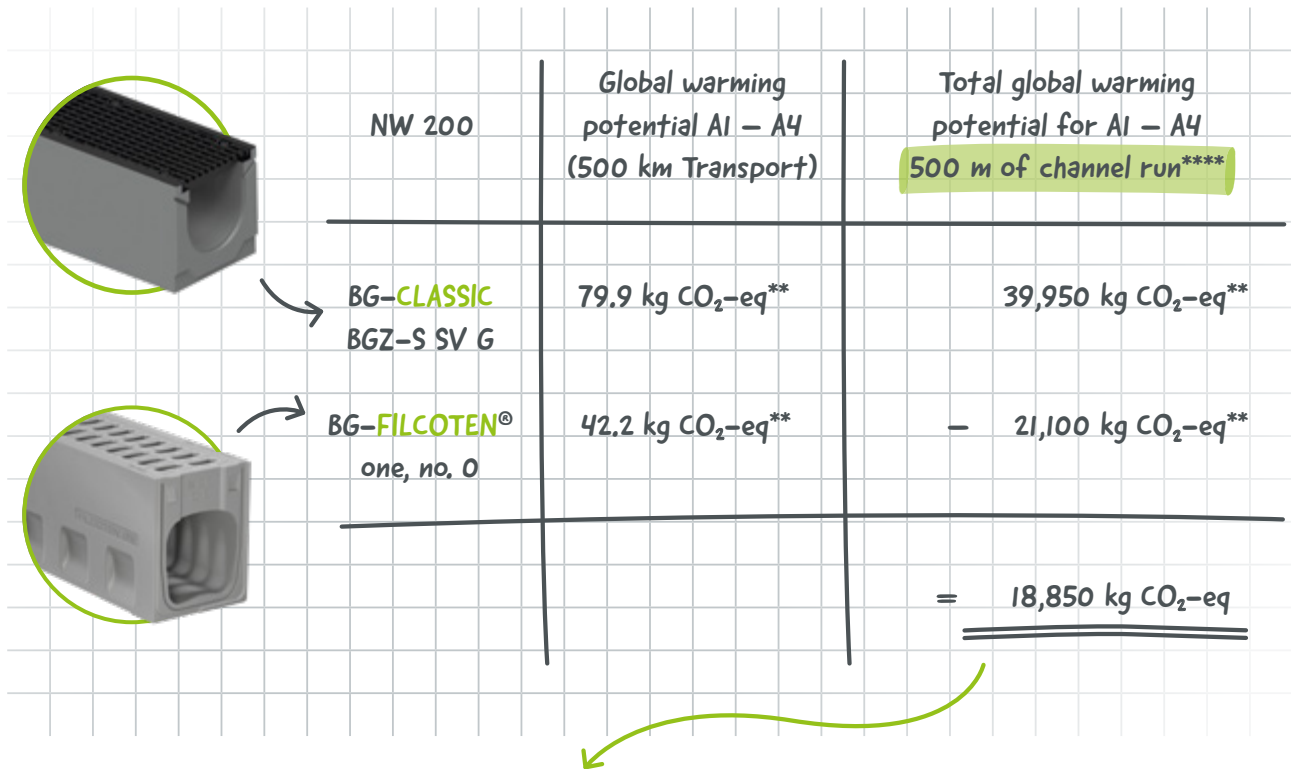 NW 200
Global warming
potential A1 – A4
(500 km Transport)
Total global warming
potential for A1 – A4
500 m of channel run****
BG–CLASSIC
BGZ–S SV G
79.9 kg CO₂–eq**
39,950 kg CO₂–eq**
BG–FILCOTEN®
one, no. 0
42.2 kg CO₂–eq**
– 21,100 kg CO₂–eq**
= 18,850 kg CO₂–eq